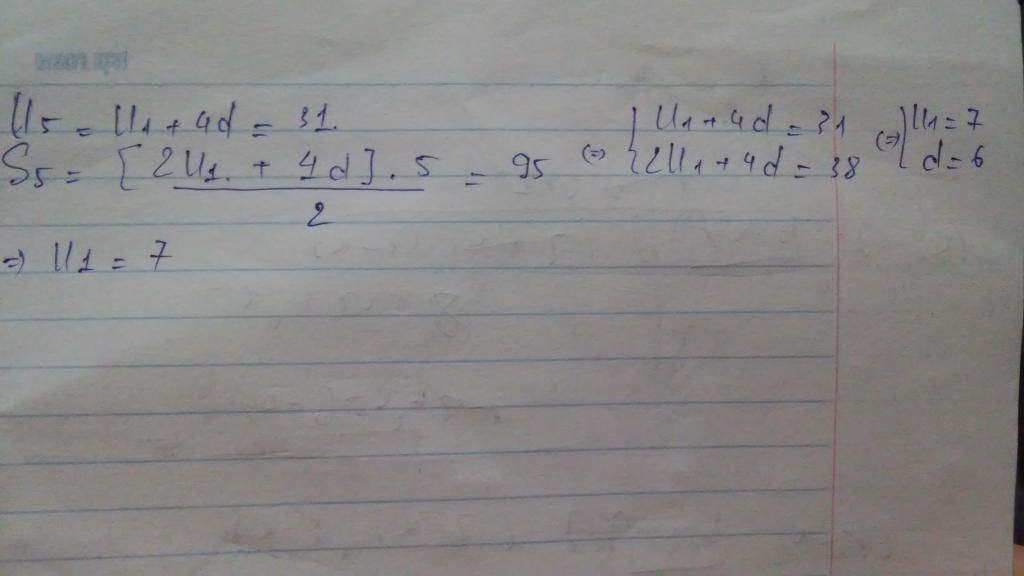 U5 = U1 + 4d = 31.
S5 = [2U1. + 4d] . 5 / 2 = 95 (=) { U1 + 4d = 31 2U1 + 4d = 38 (=) { U1 = 7 d = 6
=> U1 = 7